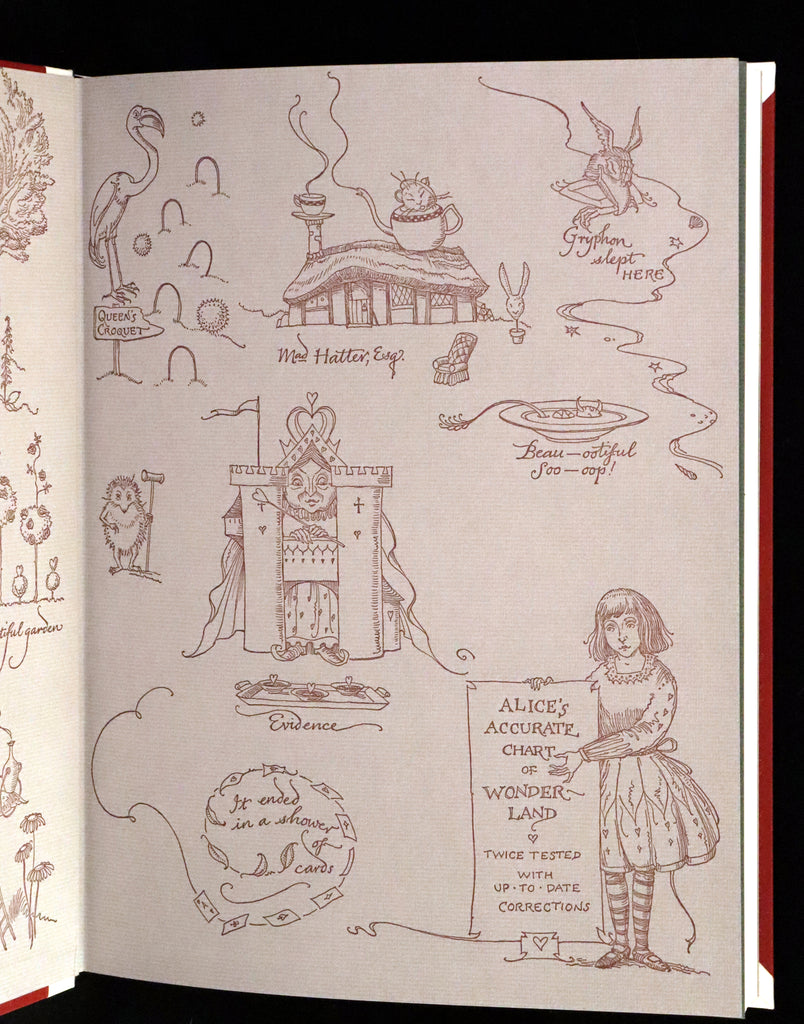 QUEEN'S
CROQUET
Mad Hatter, Esq.
Gryphon
slept
HERE
Beau—ootiful
Soo—oop!
tiful garden
Evidence
It ended
in a shower
of
cards
ALICE'S
ACCURATE
CHART
OF
WONDER-
LAND
TWICE TESTED
WITH
UP·TO·DATE
CORRECTIONS